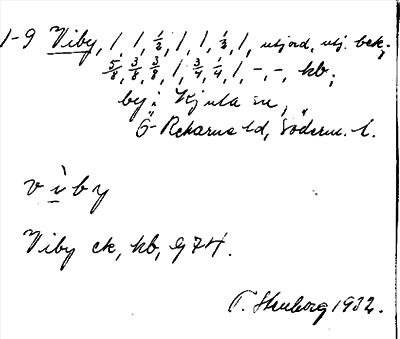 1-9 Viby, 1, 1, 1/2, 1, 1, 1/2, 1, utjord, utj. bek;
5/8, 3/8, 3/8, 1, 3/4, 1/4, 1, -, -, kb,
by i Kjula sn,
Ö-Rekarna hd, Söderm. l.
vìby
Viby ck, kb, 974.
T. Hruborg 1932.